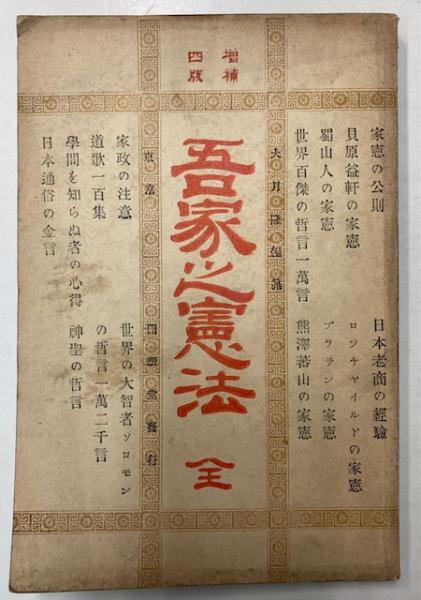 增補
四版
家憲の公則
日本老商の經驗
貝原益軒の家憲
ロツチヤイルドの家憲
蜀山人の家憲
の家憲
世界百傑の哲言一萬言
熊澤蕃山の家憲
大井
吾家之憲法 全
東京
發行
家政の注意
世界の大智者ソロモン
道歌一百集
の哲言一萬二千言
學問を知らぬ者の心得
神聖の哲言
日本通俗の金言